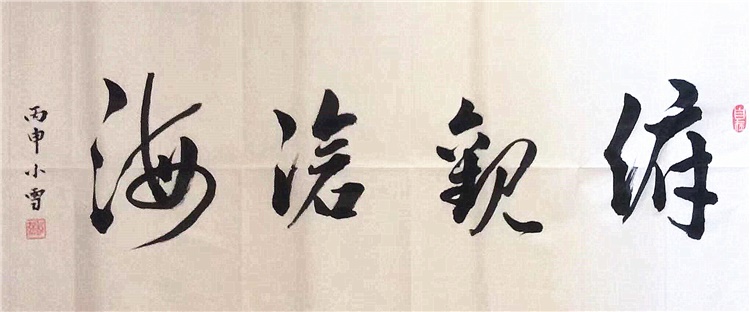 俯觀滄海
丙申小雪